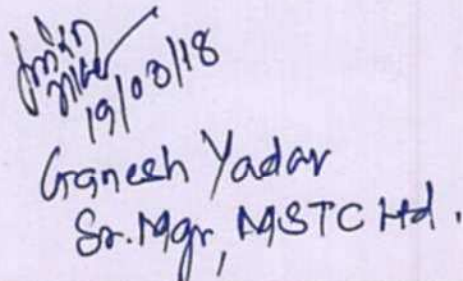 19/03/18
Ganesh Yadav
Sr. Mgr, MSTC Ltd.